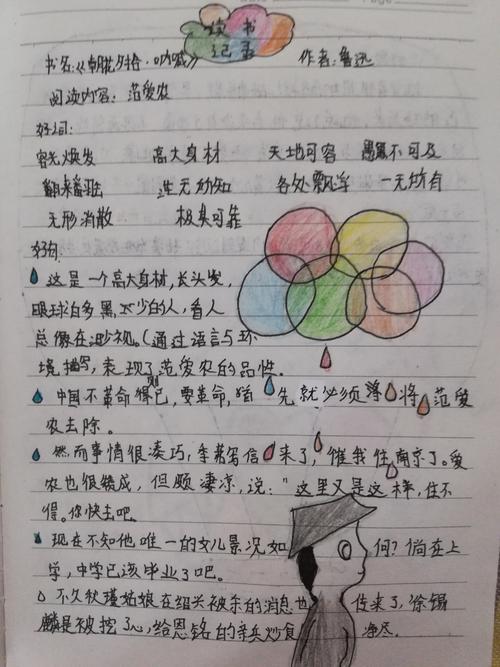 读书
记录
书名:《朝花夕拾·呐喊》 作者:鲁迅
阅读内容:范爱农
好词:
容光焕发 高大身材 天地可容 愚不可及
翻来 一无所知 各处飘浮 一无所有
无形消散 极其可靠
好句:
这是一个高大身材,长头发,
眼球白多黑少的人,看人
总像在渺视。(通过语言与环
境描写,表现了范爱农的品性。
中国不革命则已,要革命,首先就必须将范爱
农去除。
然而事情很凑巧,季茀写信来了,催我往南京了。爱
农也很赞成,但颇凄凉,说:“这里又是这样,住不
得。你快去吧。
现在不知他唯一的女儿景况如何?倘在上
学,中学已该毕业了吧。
不久秋瑾姑娘在绍兴被杀的消息也传来了,徐锡
麟是被挖了心,给恩铭的亲兵炒食净尽。